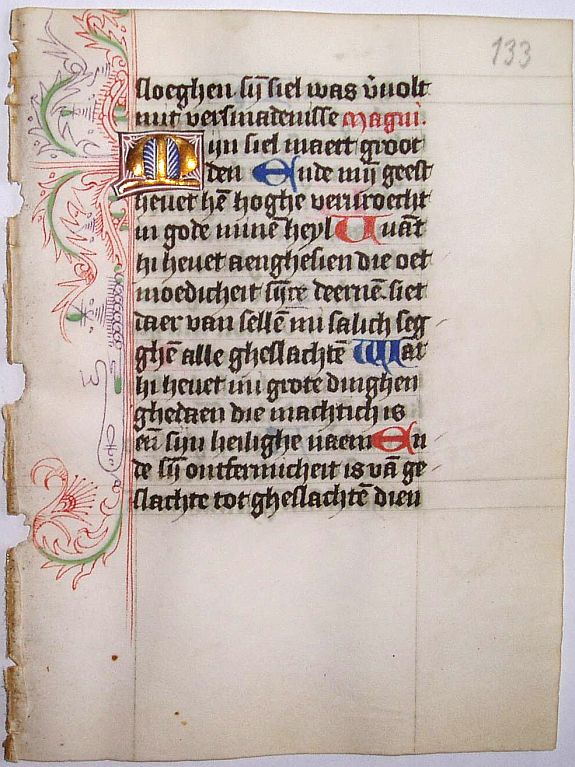 133
sloeghen sijn siel was v̄uolt
mit versmadenisse Magni.
Mijn siel maect groot
den Ende mijn geest
heuet hē hoghe veruroecht
in gode minē heyl Want
hi heuet aenghesien die oet
moedicheit sijnre deernē siet
daer van sellē mi salich seg
ghē alle gheslachtē Wat
hi heuet mi grote dinghen
ghedaen die machtich is
eñ sijn heilighe naem En
de sijn ontfermicheit is vā ge
slachte tot gheslachtē dien